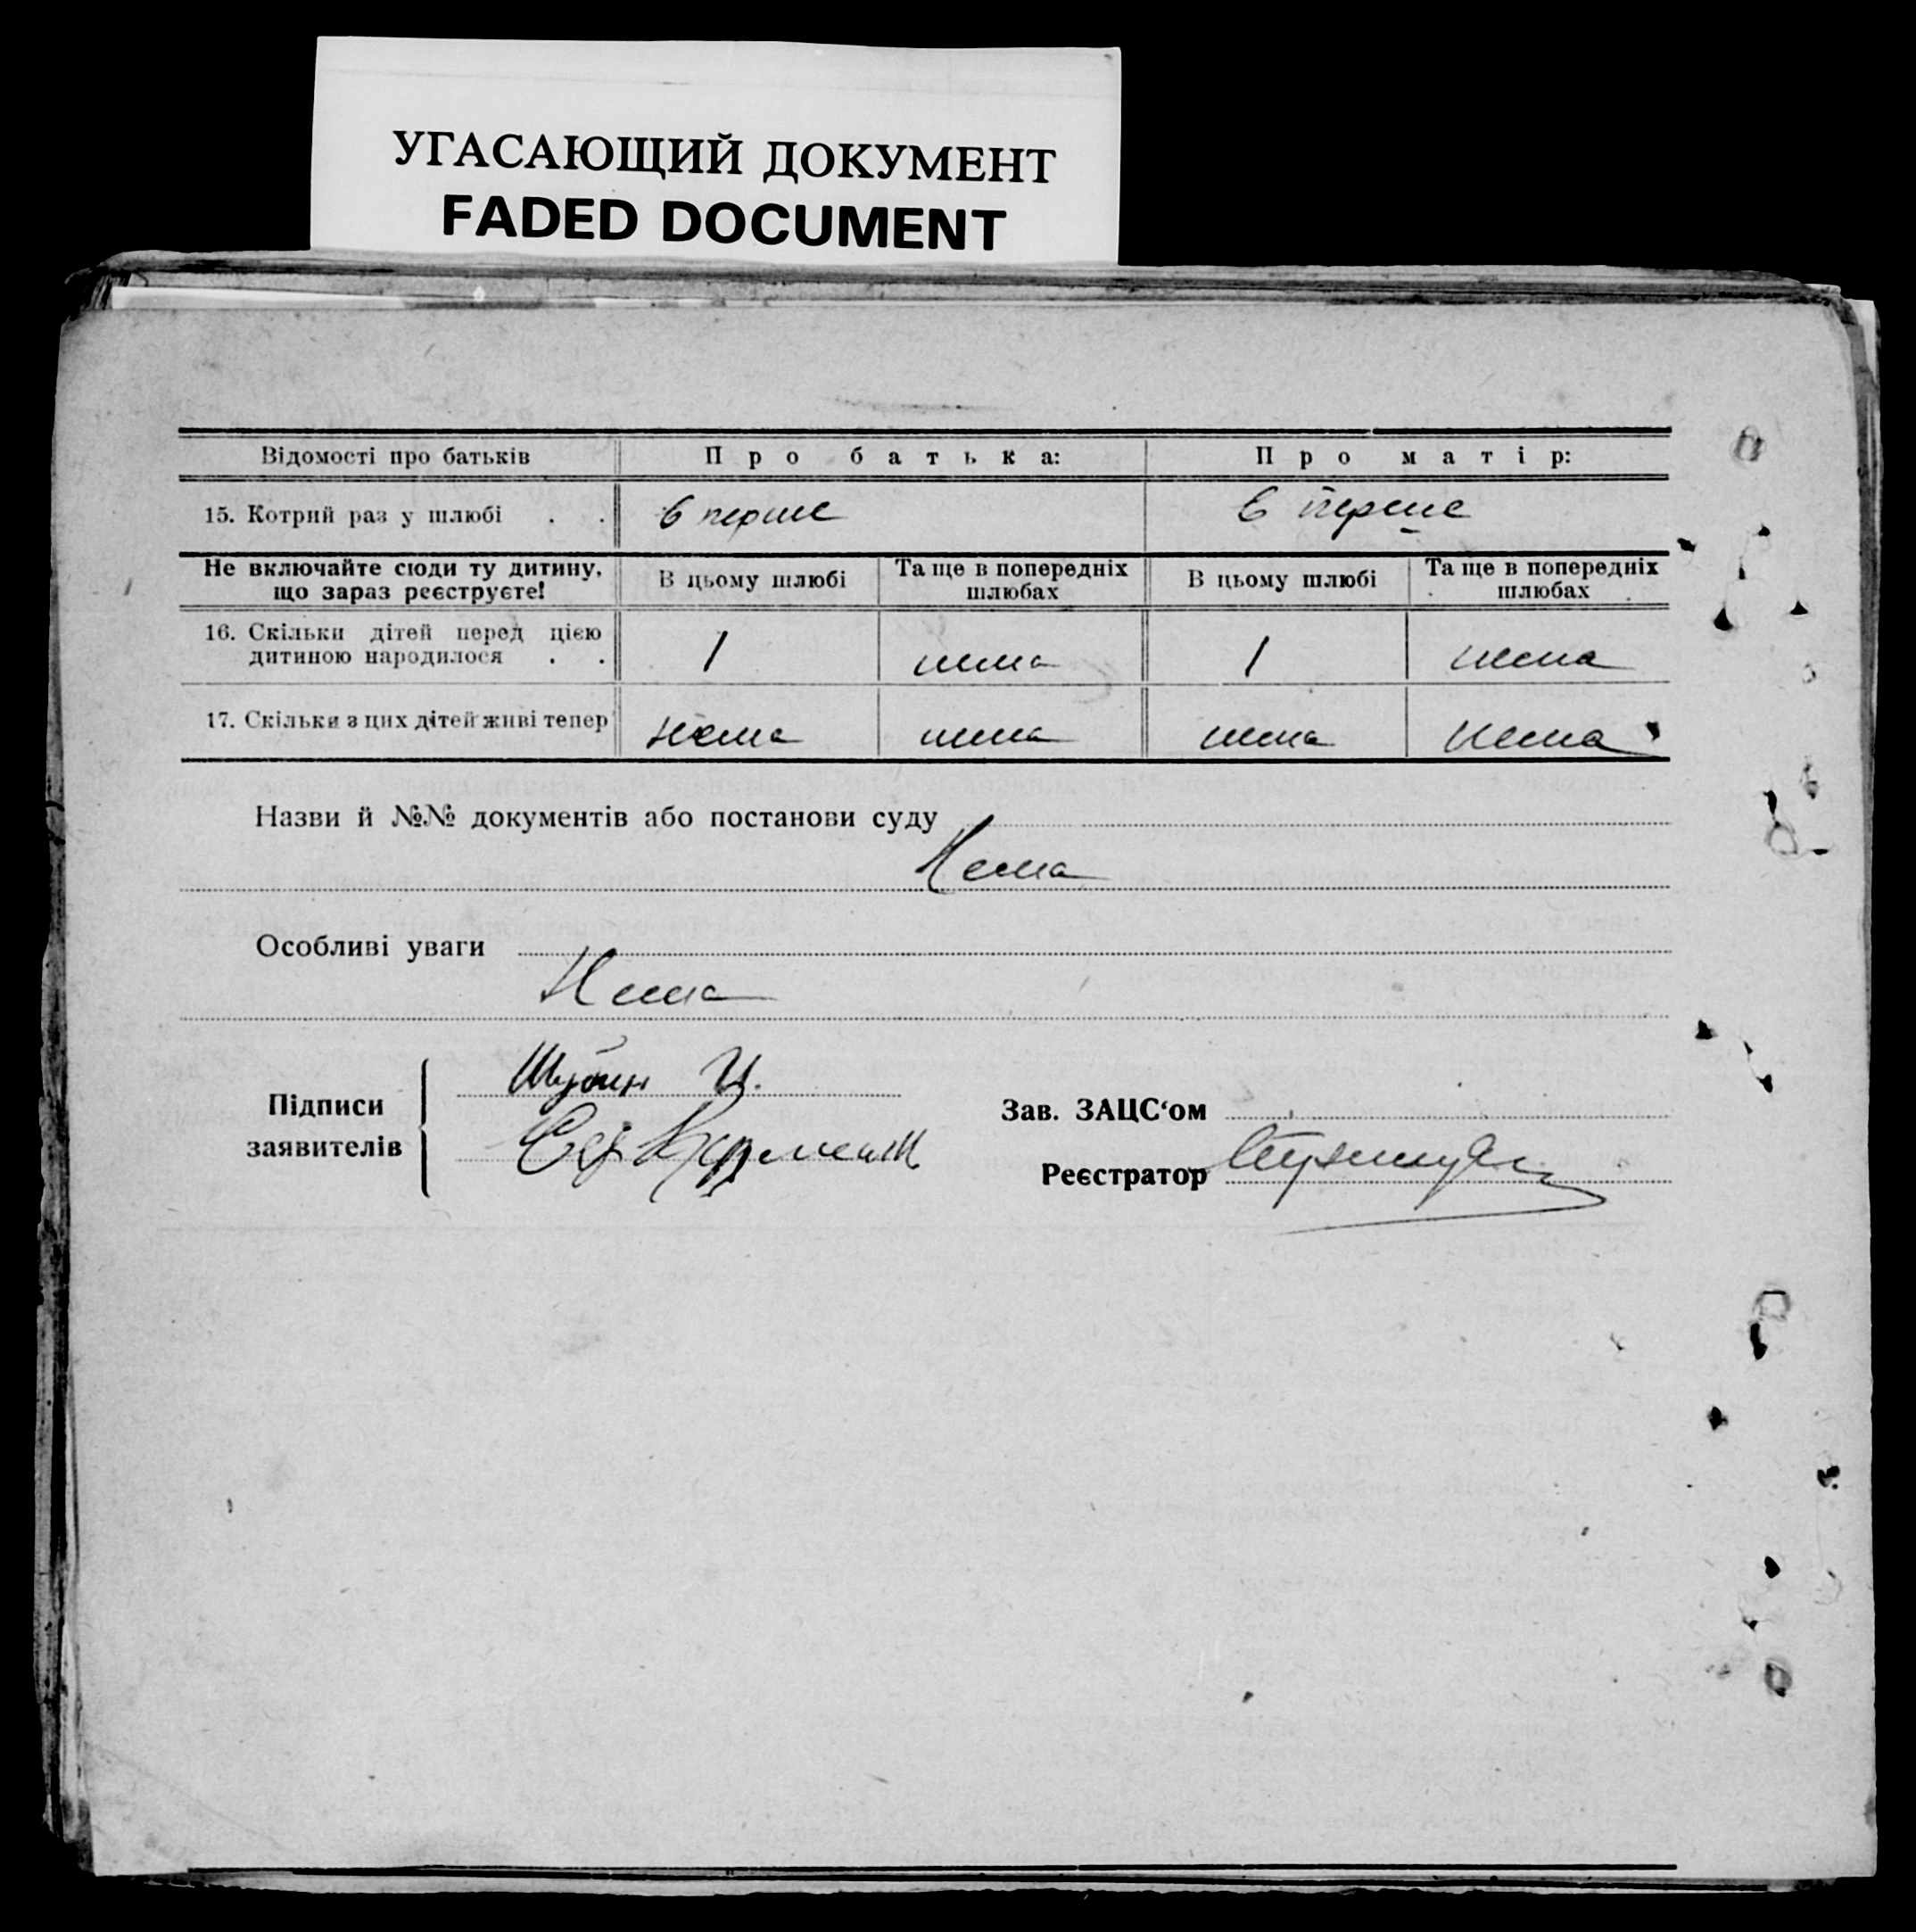 УГАСАЮЩИЙ ДОКУМЕНТ
FADED DOCUMENT
Відомості про батьків Про батька: Про матір:
15. Котрий раз у шлюбі . . в перше в перше
Не включайте сюди ту дитину, що зараз реєструєте! В цьому шлюбі Та ще в попередніх шлюбах В цьому шлюбі Та ще в попередніх шлюбах
16. Скільки дітей перед цією дитиною народилося . . 1 нема 1 нема
17. Скільки з цих дітей живі тепер нема нема нема нема
Назви й №№ документів або постанови суду
Нема
Особливі уваги
Нема
Підписи заявителів
Шубин И.
Зав. ЗАЦС‘ом
Реєстратор